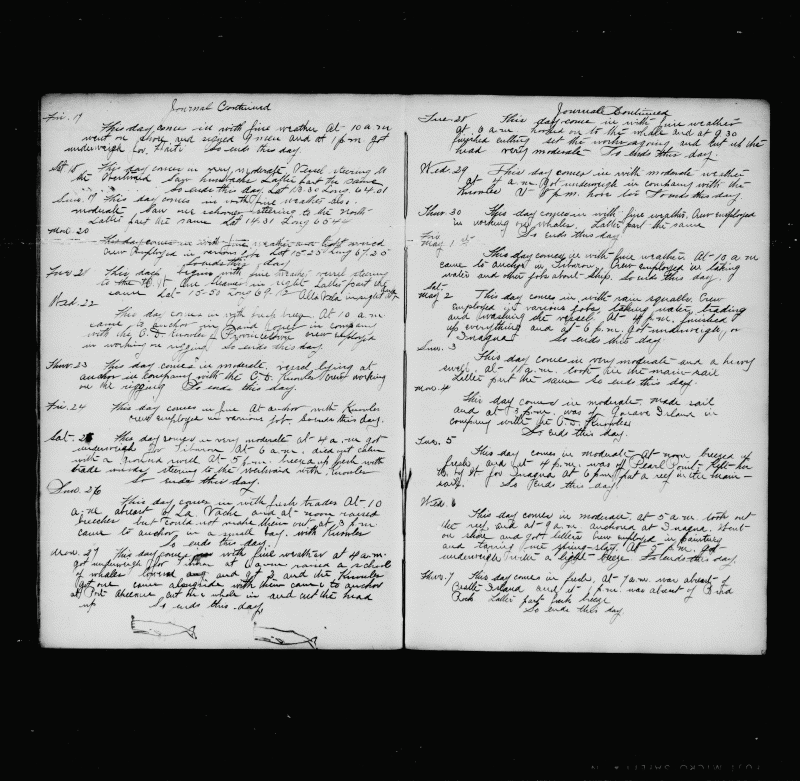 Journal Continued
Fri. 17
This day comes in with fine weather At 10 a.m
went on shore and signed men and at 1 pm got
underweigh So ends this day
Sat 18 This day comes in very moderate Vessel steering to
the Westward Saw finbacks Latter part the same
So ends this day Lat 13.50 Long 64.01
Sun. 19 This day comes in with fine weather also
moderate Saw one schooner steering to the North
Latter part the same Lat 14.31 Long 65 44
Mon. 20
This day comes in with fine weather and light wind
crew employed in various jobs Lat 15-25 Long 67.25
So ends this day
Tues 21 This day begins with fine weather vessel steaming
to the N.W. One steamer in sight Latter part the
same Lat- 15-50 Long 69.12 Alta Vela in sight
Wed. 22
This day comes in with fresh breeze. At 10 a.m
came to anchor in in company
with the A. E. Knowles crew employed
in working on rigging So ends this day
Thur 23 This day comes in moderate, vessel lying at
anchor in company with the Knowles crew working
on the rigging So ends this day.
Fri. 24 This day comes in fine At anchor with Knowles
crew employed in various jobs. So ends this day.
Sat- 25 This day comes in very moderate at 4 a.m got
underweigh for Tiburon At 6 a.m. died out calm
with a ground swell At 5 p.m. breezed up fresh with
trade winds steering to the westward with Knowles
So ends this day
Sun. 26
This day comes in with fresh trades At- 10
a.m abreast of La Vache and at noon raised
but could not make them out at 3 p.m
came to anchor in a small bay. with Knowles
So ends this day
Mon. 27 This day comes with fine weather at 4 a.m
got underweigh for at 6 a.m raised a school
of whales lowered and got 2 and the Knowles
got one came alongside with them came to anchor
at Port cut one whole in and cut the head
up So ends this day,
Journal Continued
Tues- 28 This day comes in with fine weather
at 6 a.m hooked on to the whale and at 9 30
finished cutting set the works agoing and cut up the
head very moderate So ends this day.
Wed. 29 This day comes in with moderate weather
at 4 a.m got underweigh in company with the
Knowles at 8 p.m. hove to So ends this day
Thur 30 This day comes in with fine weather. Crew employed
in working up whales, Latter part the same
So ends this day
Fri
May 1st
This day comes in with fine weather At- 10 a m
came to anchor in Tiburon, Crew employed in taking
water and other jobs about ship. So ends this day
Sat-
May 2 This day comes in with rain squalls Crew
employed in various jobs, taking water, trading
and washing the vessel. At- 4 p.m. finished
up everything and at- 6 p.m. got underweigh for
Inagua So ends this day
Sun. 3
This day comes in very moderate and a heavy
swell, at- 11 a.m. took in the main sail
Latter part the same So ends this day.
Mon. 4
This day comes in moderate, made sail
and at 3 p.m. was off Gonave Island in
company with the A. E. Knowles
So ends this day.
Tues. 5
This day comes in moderate At noon breezed up
fresh, and at 4 p.m. was off Pearl Point- Kept her
N. by W for Inagua at 6 p.m. put a reef in the main-
sail. So ends this day
Wed. 6
This day comes in moderate, at 5 a.m. took out
the reef. and at- 9 a.m. anchored at Inagua. Went
on shore and got letters Crew employed in painting
and staving fine spring-stay. At 5 p.m. got
underweigh with a light breeze So ends this day
Thur. 7 This day comes in fresh, at 7 a.m. was abreast of
Castle Island and at 1 p.m. was abreast of Bird
Rock Latter part fresh breeze
So ends this day